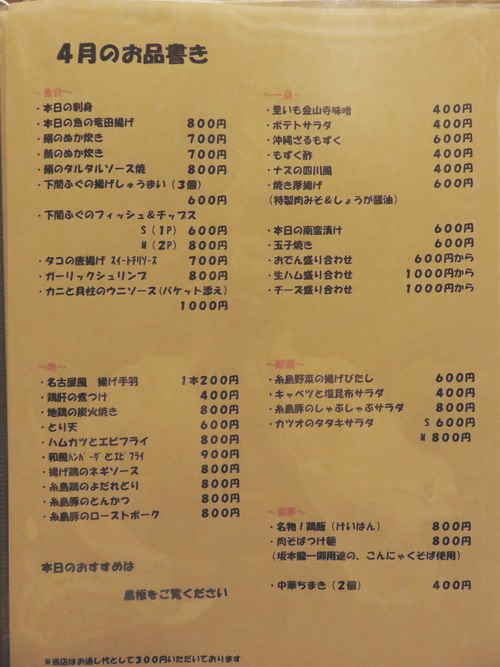 4月のお品書き
～魚介～
・本日の刺身
・本日の魚の竜田揚げ 800円
・鰯のぬか炊き 700円
・鯖のぬか炊き 700円
・鰯のタルタルソース焼 800円
・下関ふぐの揚げしゅうまい（3個）
600円
・下関ふぐのフィッシュ＆チップス
S（1P） 600円
M（2P） 800円
・タコの唐揚げ ｽｲｰﾄﾁﾘｿｰｽ 700円
・ガーリックシュリンプ 800円
・カニと貝柱のウニソース(バケット添え)
1000円
～肉～
・名古屋風 揚げ手羽 1本200円
・鶏肝の煮つけ 400円
・地鶏の炭火焼き 800円
・とり天 600円
・ハムカツとエビフライ 800円
・和風ﾊﾝﾊﾞｰｸﾞとｴﾋﾞﾌﾗｲ 900円
・揚げ鶏のネギソース 800円
・糸島鶏のよだれどり 800円
・糸島豚のとんかつ 800円
・糸島豚のローストポーク 800円
本日のおすすめは
黒板をご覧ください
※当店はお通し代として300円いただいております
～一品～
・里いも金山寺味噌 400円
・ポテトサラダ 400円
・沖縄ざるもずく 600円
・もずく酢 400円
・ナスの四川風 400円
・焼き厚揚げ 600円
(特製肉みそ＆しょうが醤油)
・本日の南蛮漬け 600円
・玉子焼き 600円
・おでん盛り合わせ 600円から
・生ハム盛り合わせ 1000円から
・チーズ盛り合わせ 1000円から
～野菜～
・糸島野菜の揚げびたし 600円
・キャベツと塩昆布サラダ 400円
・糸島豚のしゃぶしゃぶサラダ 800円
・カツオのタタキサラダ S 600円
M 800円
～食事～
・名物！鶏飯（けいはん） 800円
・肉そばつけ麺 800円
(坂本龍一御用達の、こんにゃくそば使用)
・中華ちまき（2個） 400円